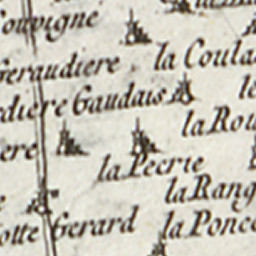 ouvigne
Geraudiere
la Coula
diere Gaudais
le
la Rou
ere
la Pecrie
la Rang
otte Gerard
la Ponce